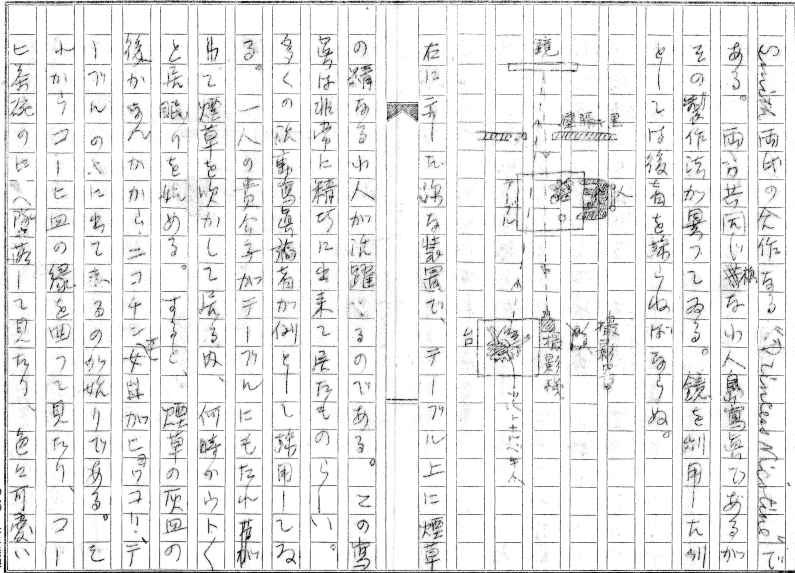 Smith 両氏の合作なる "Princess Nicotine" で
ある。両方共同じ様な小人島寫真であるが
その製作法が異つてゐる。鏡を利用した例
としては後者を語らねばならぬ。
鏡
壁張黒
人
テーブル
撮影技師
撮影機
台
右に示した様な装置で、テーブル上に煙草
の精なる小人が活躍するのである。この寫
真は非常に精巧に出来て居たものらしい。
多くの映畫論者が例として採用してゐ
る。一人の貴公子がテーブルにもたれながら
煙草を吹かして居る内、何時かウトく
と居眠りを始める。すると、煙草の灰皿の
後かなんかから、ニコチン女史がヒョッコリ、テ
ーブルの上に出て来るのが始りである。そ
れからコーヒ皿の縁を廻つて見たり、コー
ヒ茶碗の中へ墜落して見たり、色々可愛い